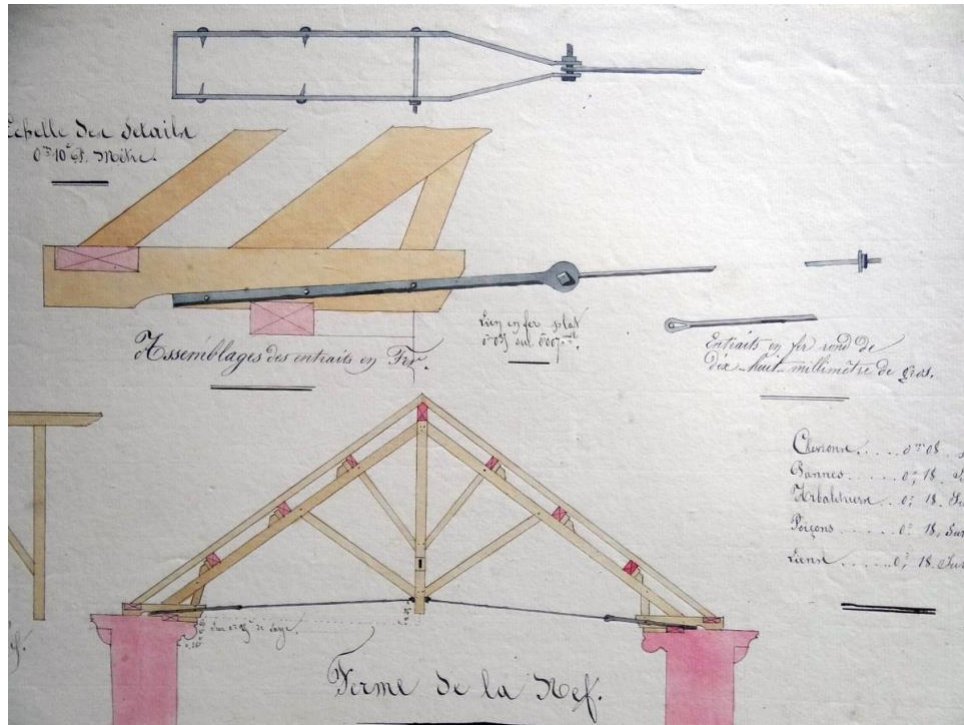 Echelle des Details
0.m10c p. Mètre.
Assemblages des entraits en Fer.
Lien en fer plat
Entraits en fer rond de
dix-huit millimètre de gros.
Chevrons .... 0m08
Pannes ..... 0, 18.
Arbaletriers 0, 18. Sur
Poiçons .... 0, 18, Sur
Liens ..... 0, 18. Sur
de large
Ferme de la Nef.